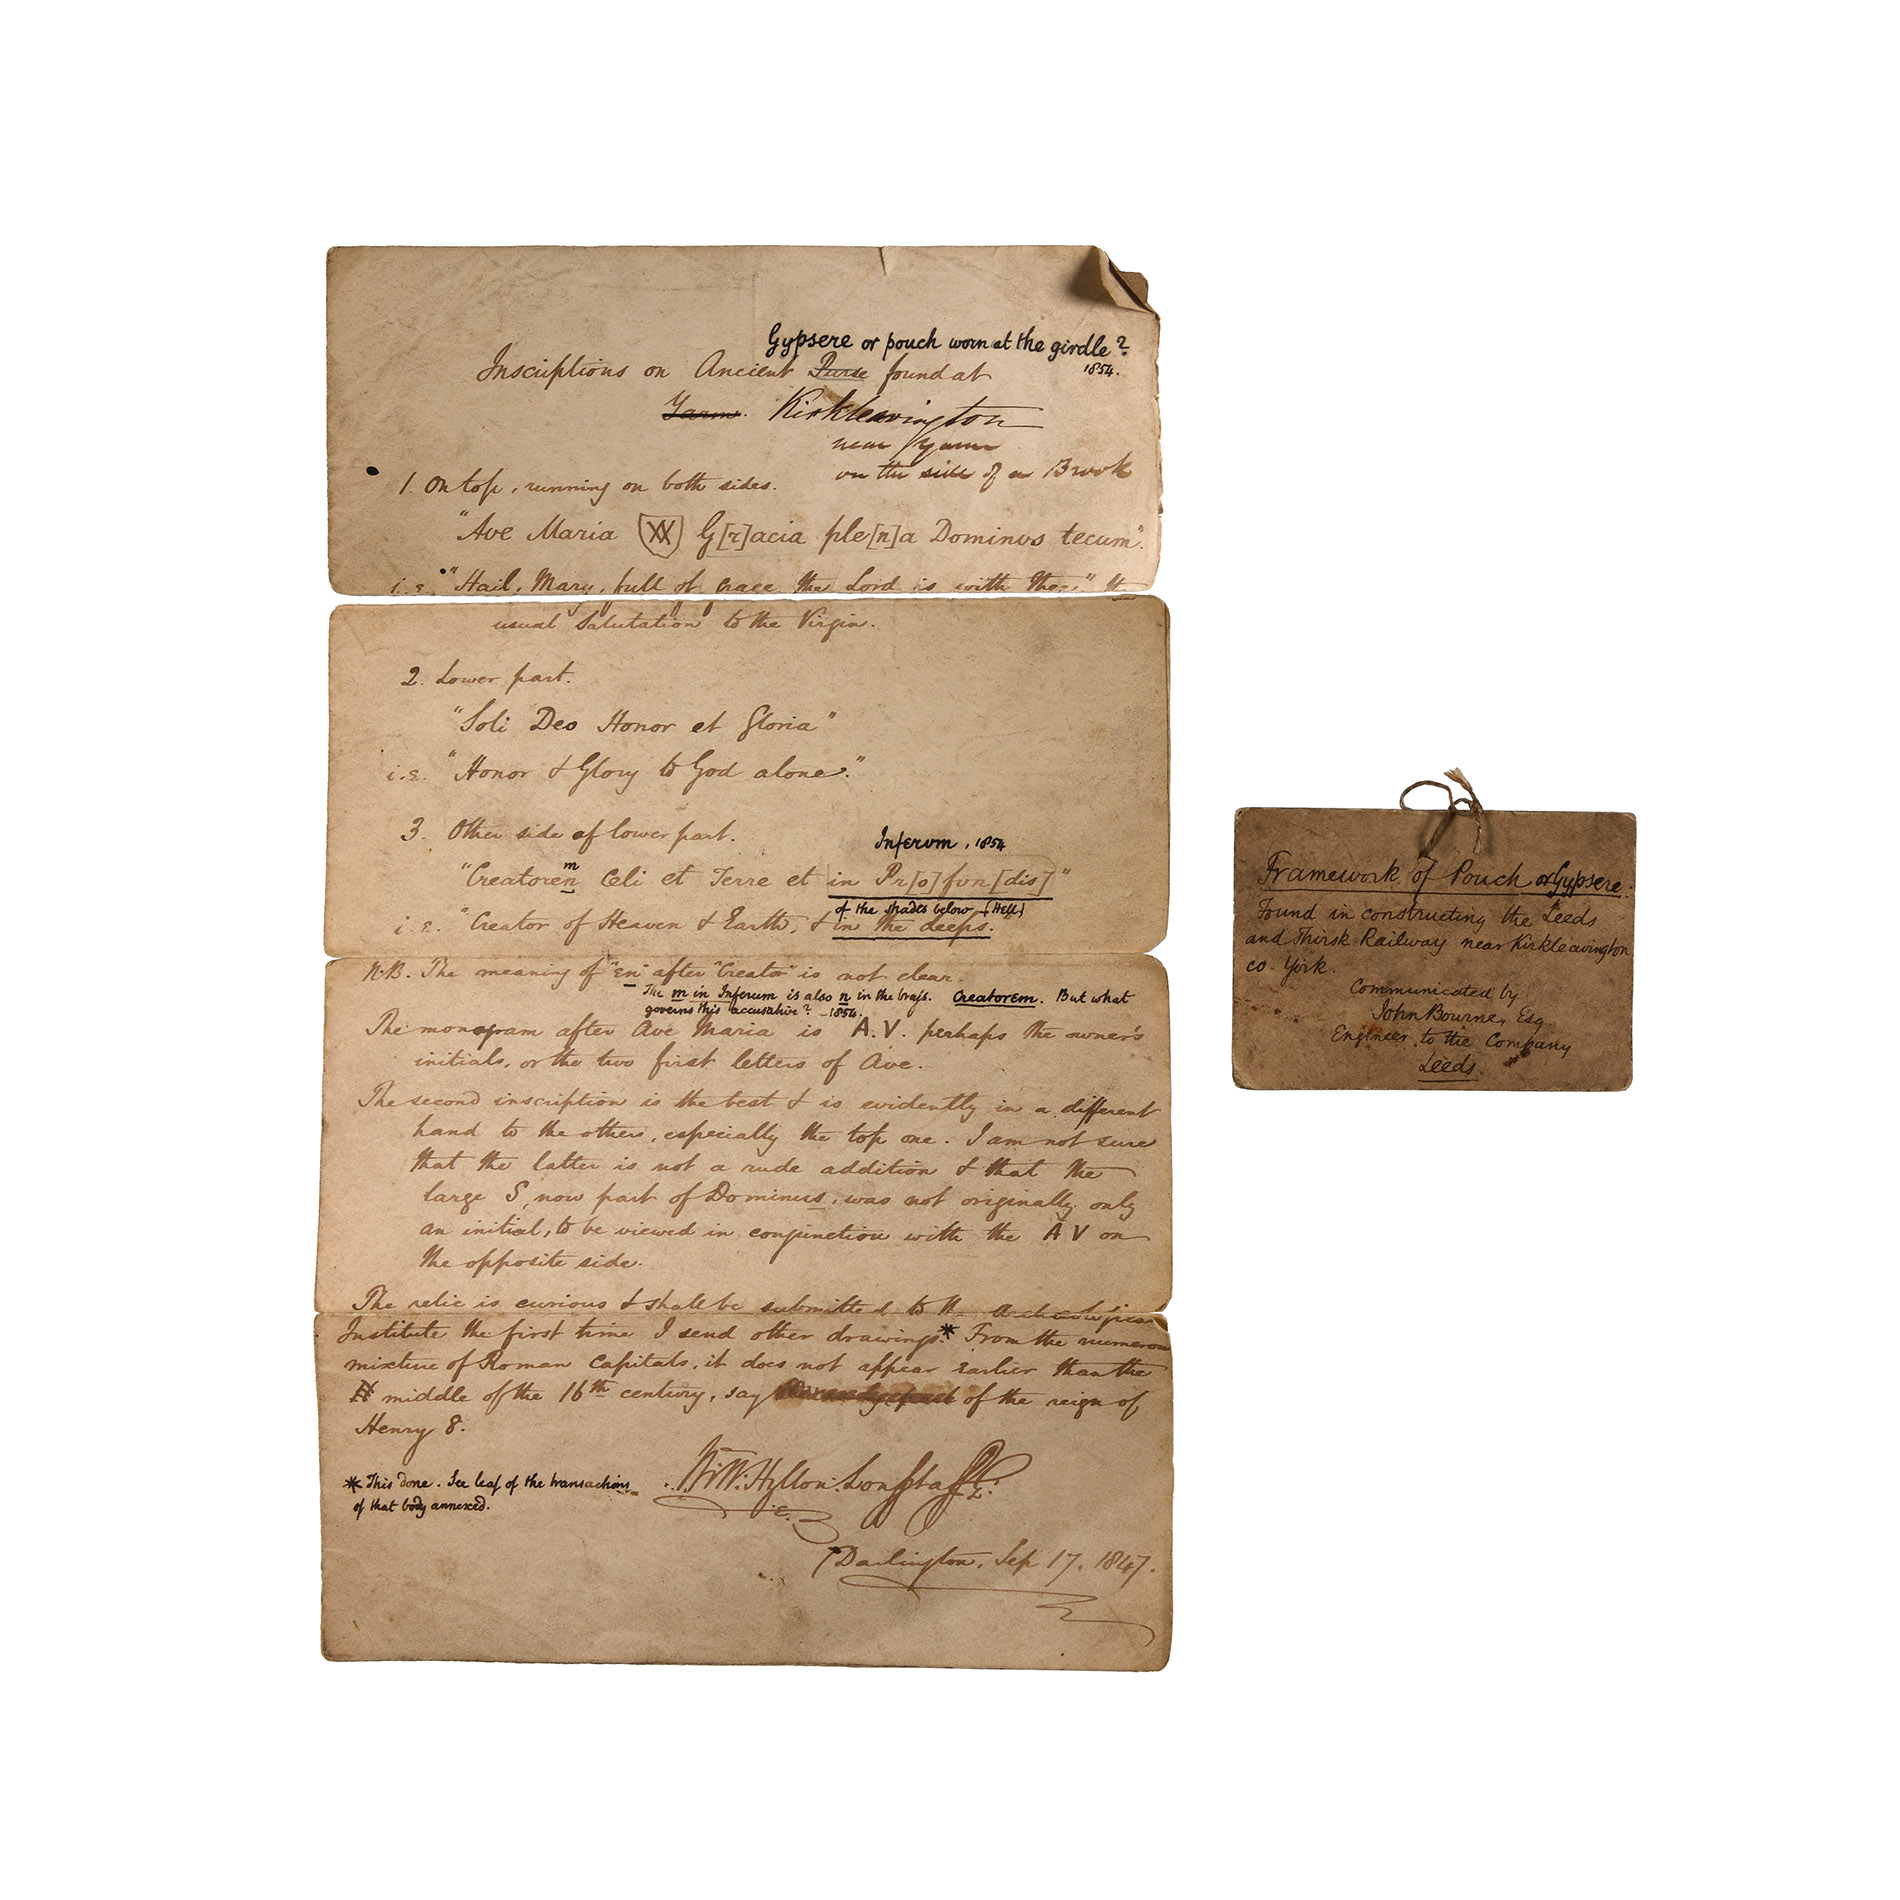 Gypsere or pouch worn at the girdle?
1854.
Inscriptions on Ancient Purse found at
Yarm. Kirkleavington
near Yarm
on the side of a Brook
1. On top, running on both sides.
"Ave Maria G[r]acia ple[n]a Dominvs tecum".
i.e. "Hail, Mary, full of grace the Lord is with thee," the
usual Salutation to the Virgin.
2. Lower part.
"Soli Deo Honor et Gloria"
i.e. "Honor & Glory to God alone."
3. Other side of lower part.
Inferum, 1854
m
"Creatoren Celi et Terre et in Pr[o]fvn[dis]"
of the shades below (Hell)
i.e. "Creator of Heaven & Earth, & in the deeps."
N.B. The meaning of "en" after "Creator" is not clear.
The m in Inferum is also n in the brass. Creatorem. But what
governs this accusative? _1854.
The monogram after Ave Maria is A.V. perhaps the owner's
initials, or the two first letters of Ave.
The second inscription is the best & is evidently in a different
hand to the others, especially the top one. I am not sure
that the latter is not a rude addition & that the
large S, now part of Dominus, was not originally only
an initial, to be viewed in conjunction with the A V on
the opposite side.
The relic is curious & shall be submitted to the Archaeological
Institute the first time I send other drawings.* From the numerous
mixture of Roman Capitals, it does not appear earlier than the
middle of the 16th century, say of the reign of
Henry 8.
* This done. See leaf of the transactions
of that body annexed.
W: Hylton: Longstaffe.
Darlington, Sep 17. 1847.
Framework of Pouch or Gypsere.
Found in constructing the Leeds
and Thirsk Railway near Kirkleavington
co. York.
Communicated by
John Bourne, Esq
Engineer to the Company
Leeds.